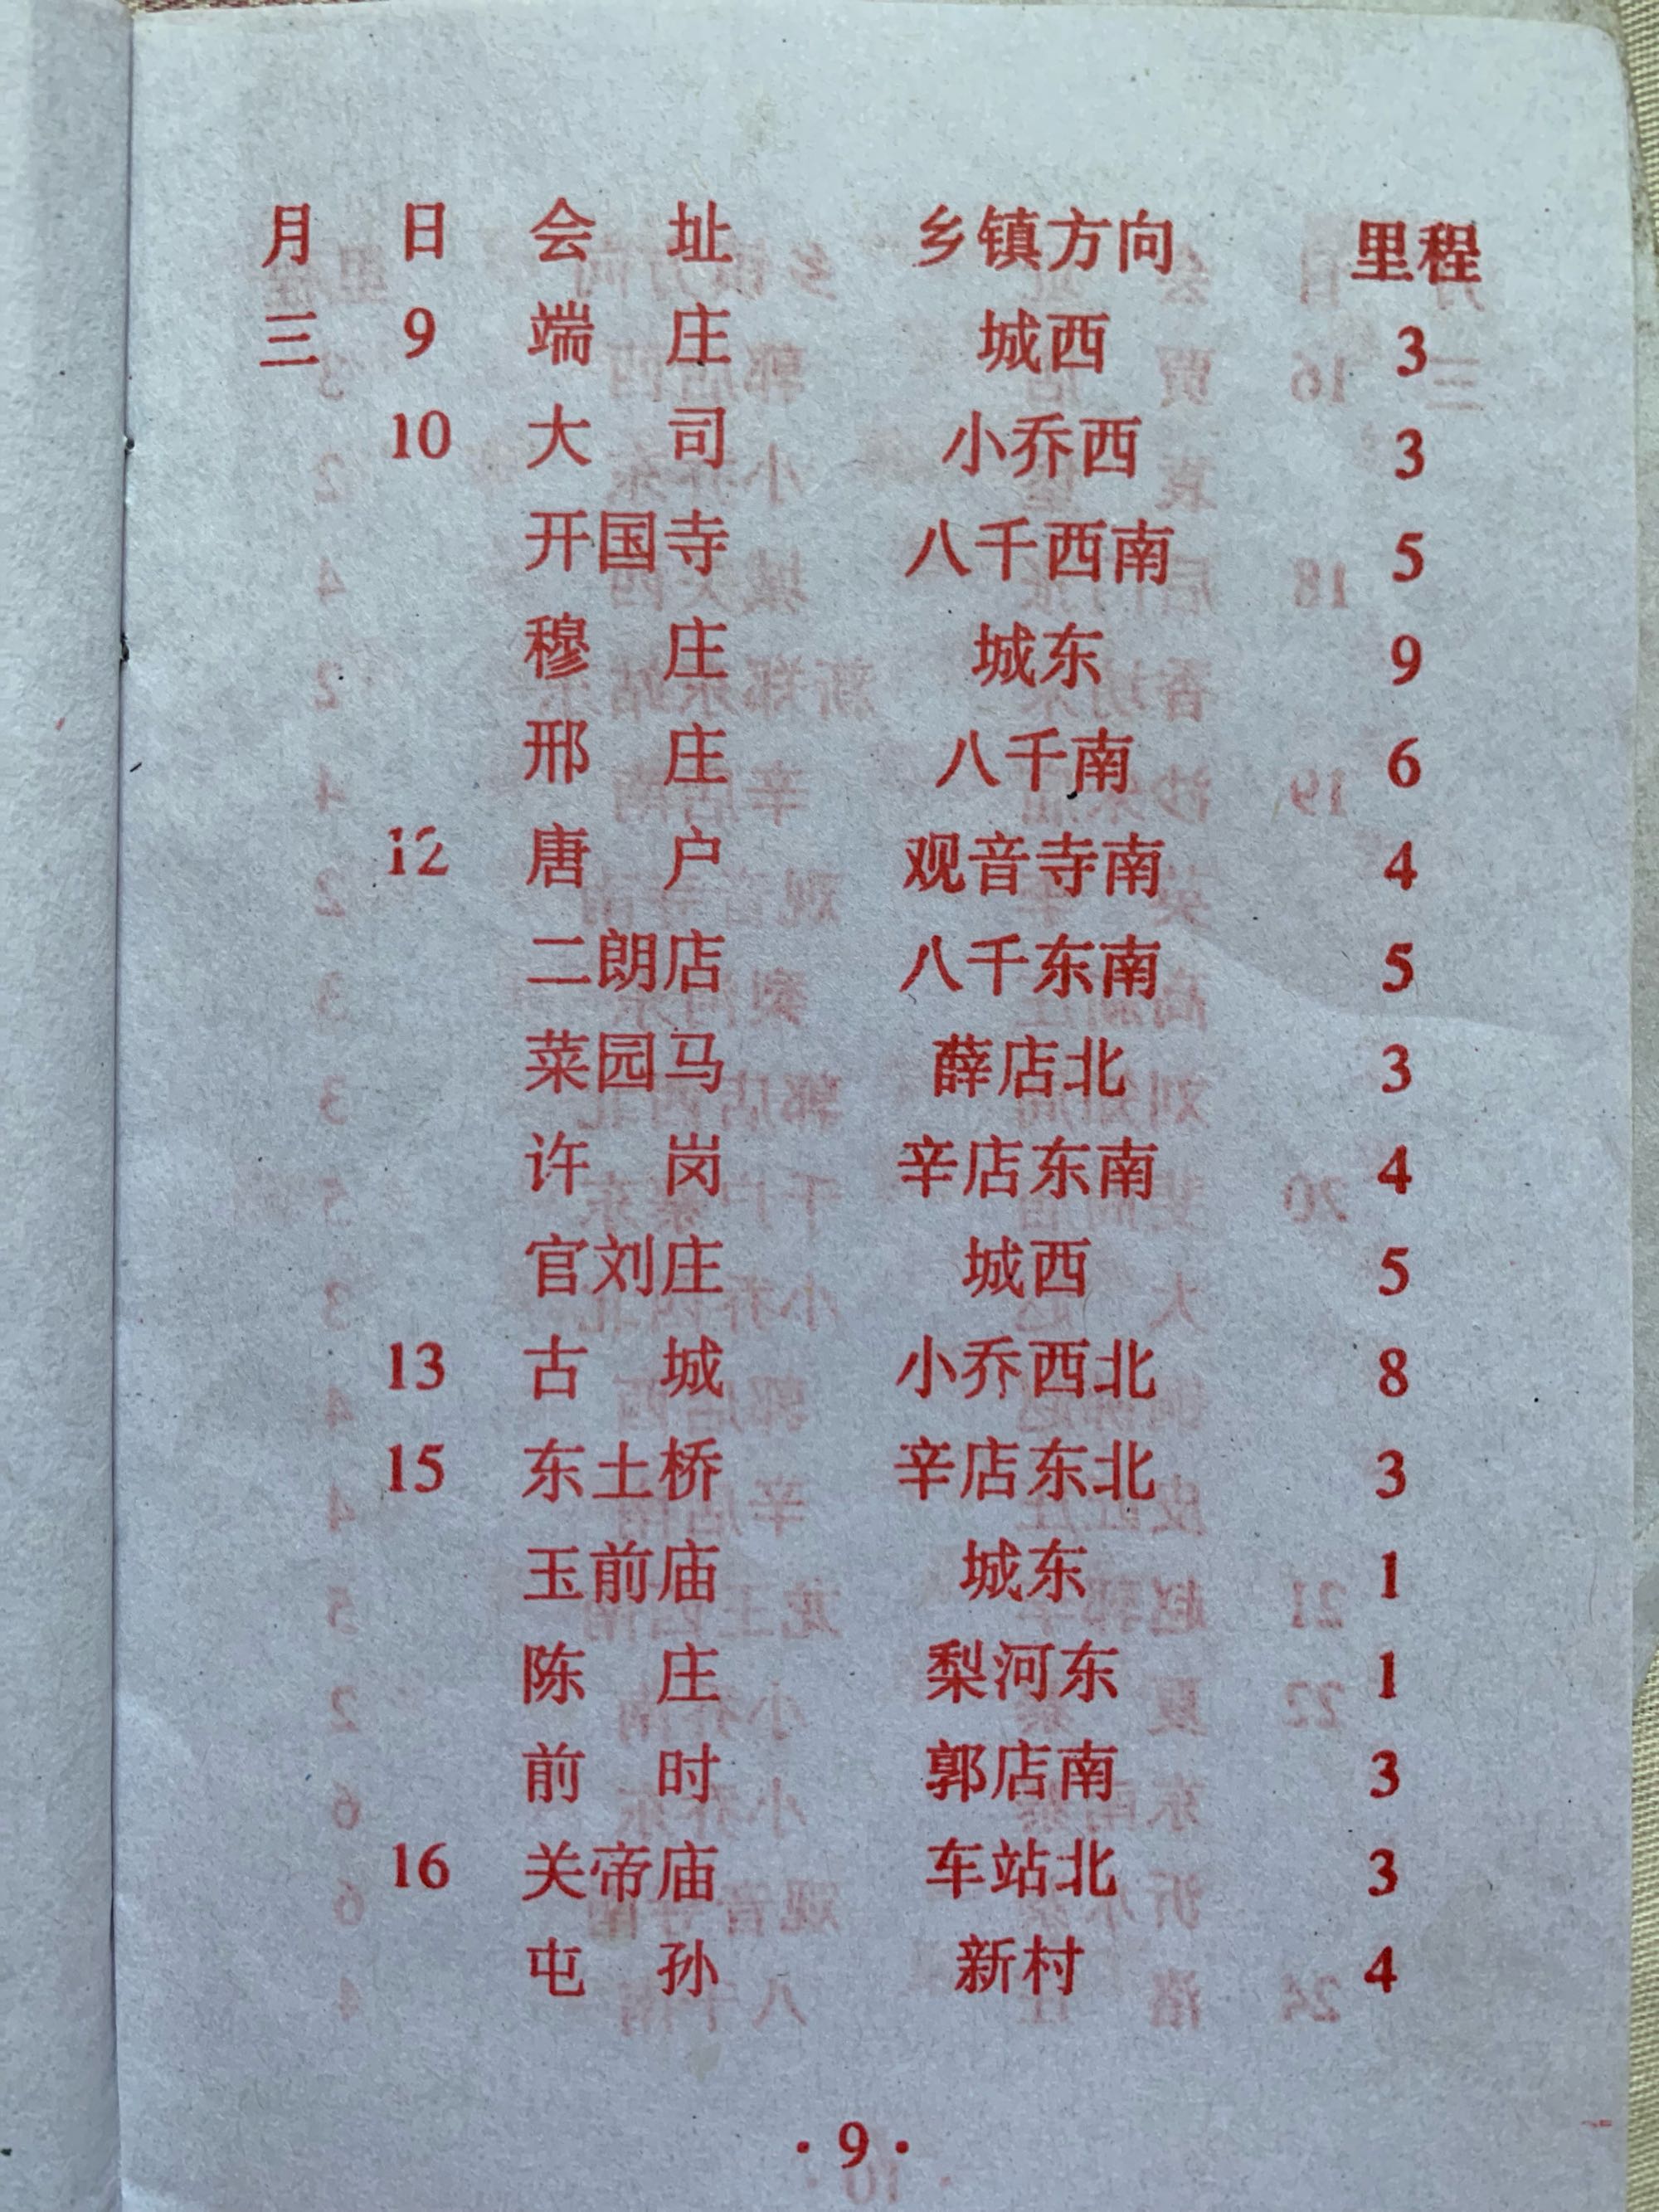 月 日 会 址 乡镇方向 里程
三 9 端 庄 城西 3
10 大 司 小乔西 3
开国寺 八千西南 5
穆 庄 城东 9
邢 庄 八千南 6
12 唐 户 观音寺南 4
二朗店 八千东南 5
菜园马 薛店北 3
许 岗 辛店东南 4
官刘庄 城西 5
13 古 城 小乔西北 8
15 东土桥 辛店东北 3
玉前庙 城东 1
陈 庄 梨河东 1
前 时 郭店南 3
16 关帝庙 车站北 3
屯 孙 新村 4
·9·